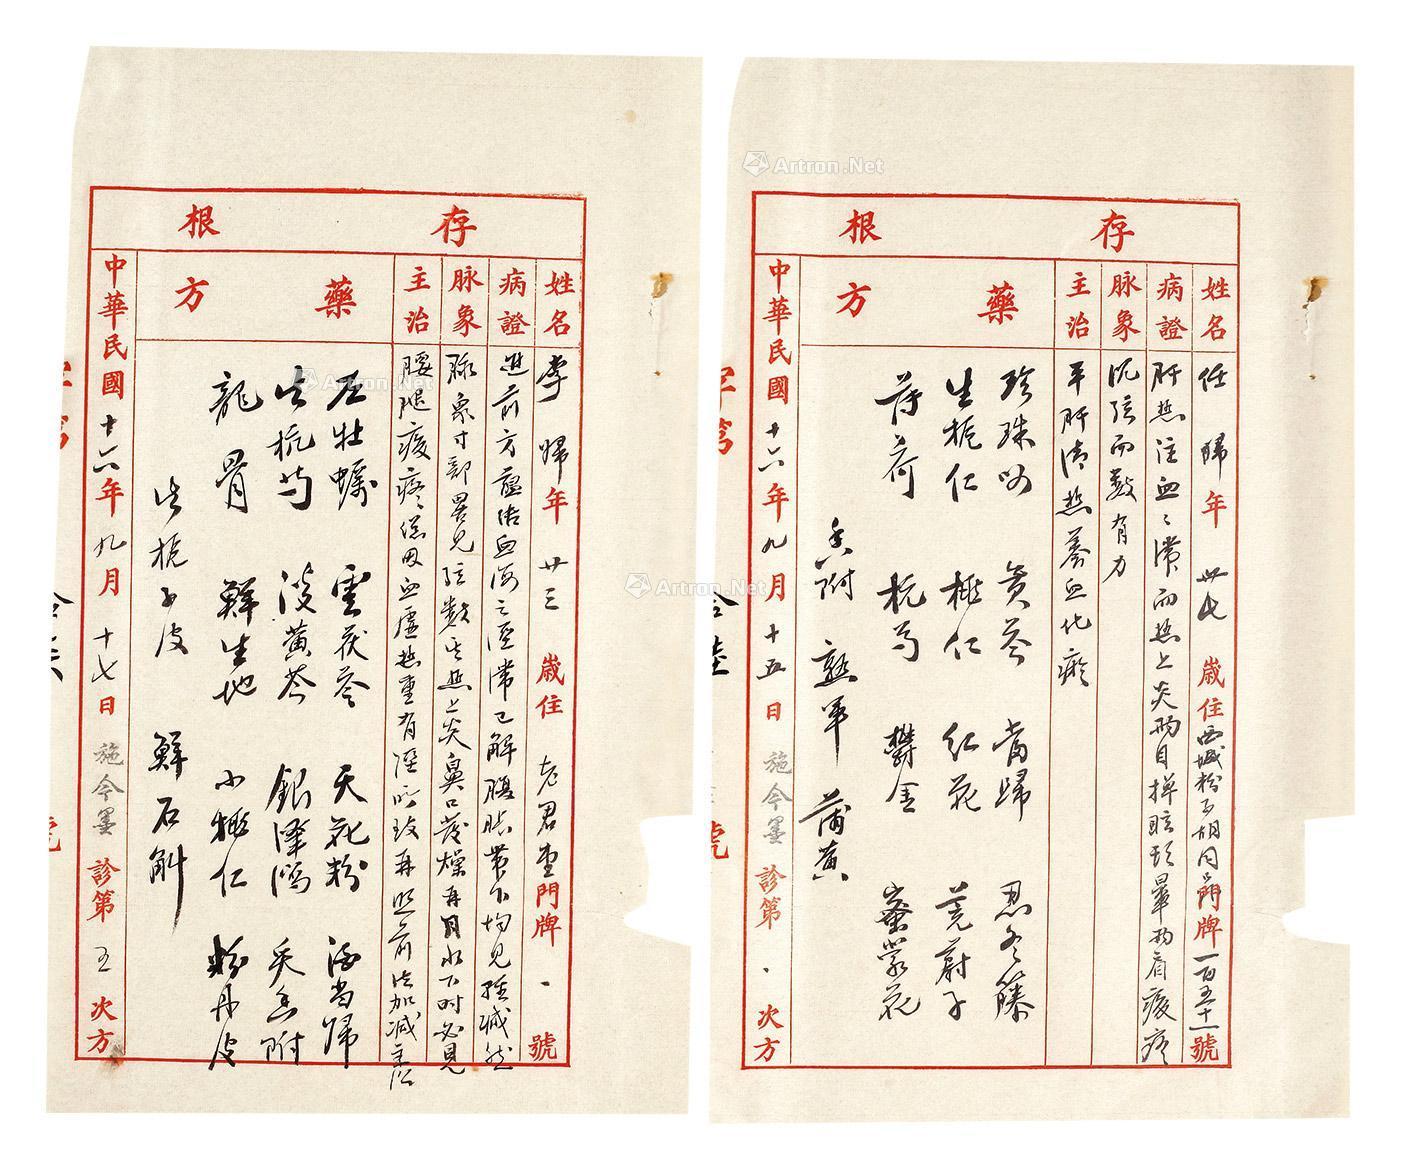 存根
姓名 任 歸 年 卅七 歲 住 西城粉子胡同 門牌 一百五十一 號
病證 肝熱注血血滯而熱上炎兩目撣眩頭暈兩肩痠疼
脉象 沉弦而數有力
主治 平肝清熱養血化瘀
藥方
珍珠母 黃芩 當歸 忍冬藤
生梔仁 桃仁 紅花 茺蔚子
薄荷 杭芍 鬱金 密蒙花
香附 熟軍 蒲黃
中華民國十六年九月十五日 施今墨 診第 次方
號
存根
姓名 李 歸 年 廿三 歲 住 老君堂 門牌 號
病證 進前方蘊結血海之溼滯已解腹脹帶下均見輕減然
脉象 脉象寸部畧見弦數 熱上炎鼻口發燥再月水下時必見
主治 腰腿痠疼係因血虛熱重有溼所致再照前法加減主治
藥方
左牡蠣 雲茯苓 天花粉 酒當歸
生杭芍 淡黃芩 銀澤瀉 炙香附
龍骨 鮮生地 小桃仁 粉丹皮
生梔子皮 鮮石斛
中華民國十六年九月十七日 施今墨 診第五次方
號
Artron.Net
Artron.Net
Artron.Net
Artron.Net